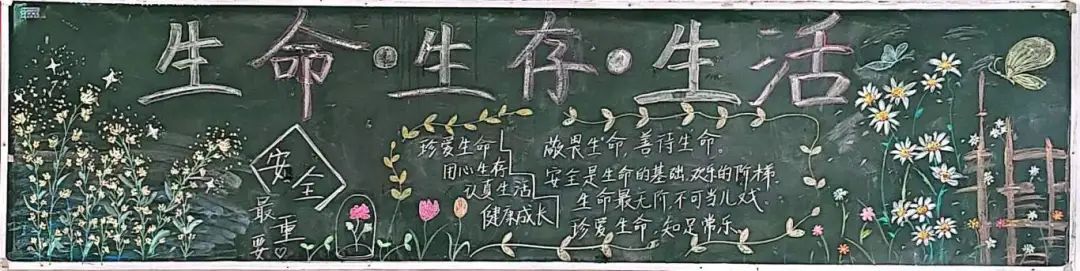 生命·生存·生活
安全
最重要
珍爱生命
用心生存
认真生活
健康成长
敬畏生命,善待生命。
安全是生命的基础,欢乐的阶梯.
生命最无价 不可当儿戏.
珍爱生命,知足常乐.